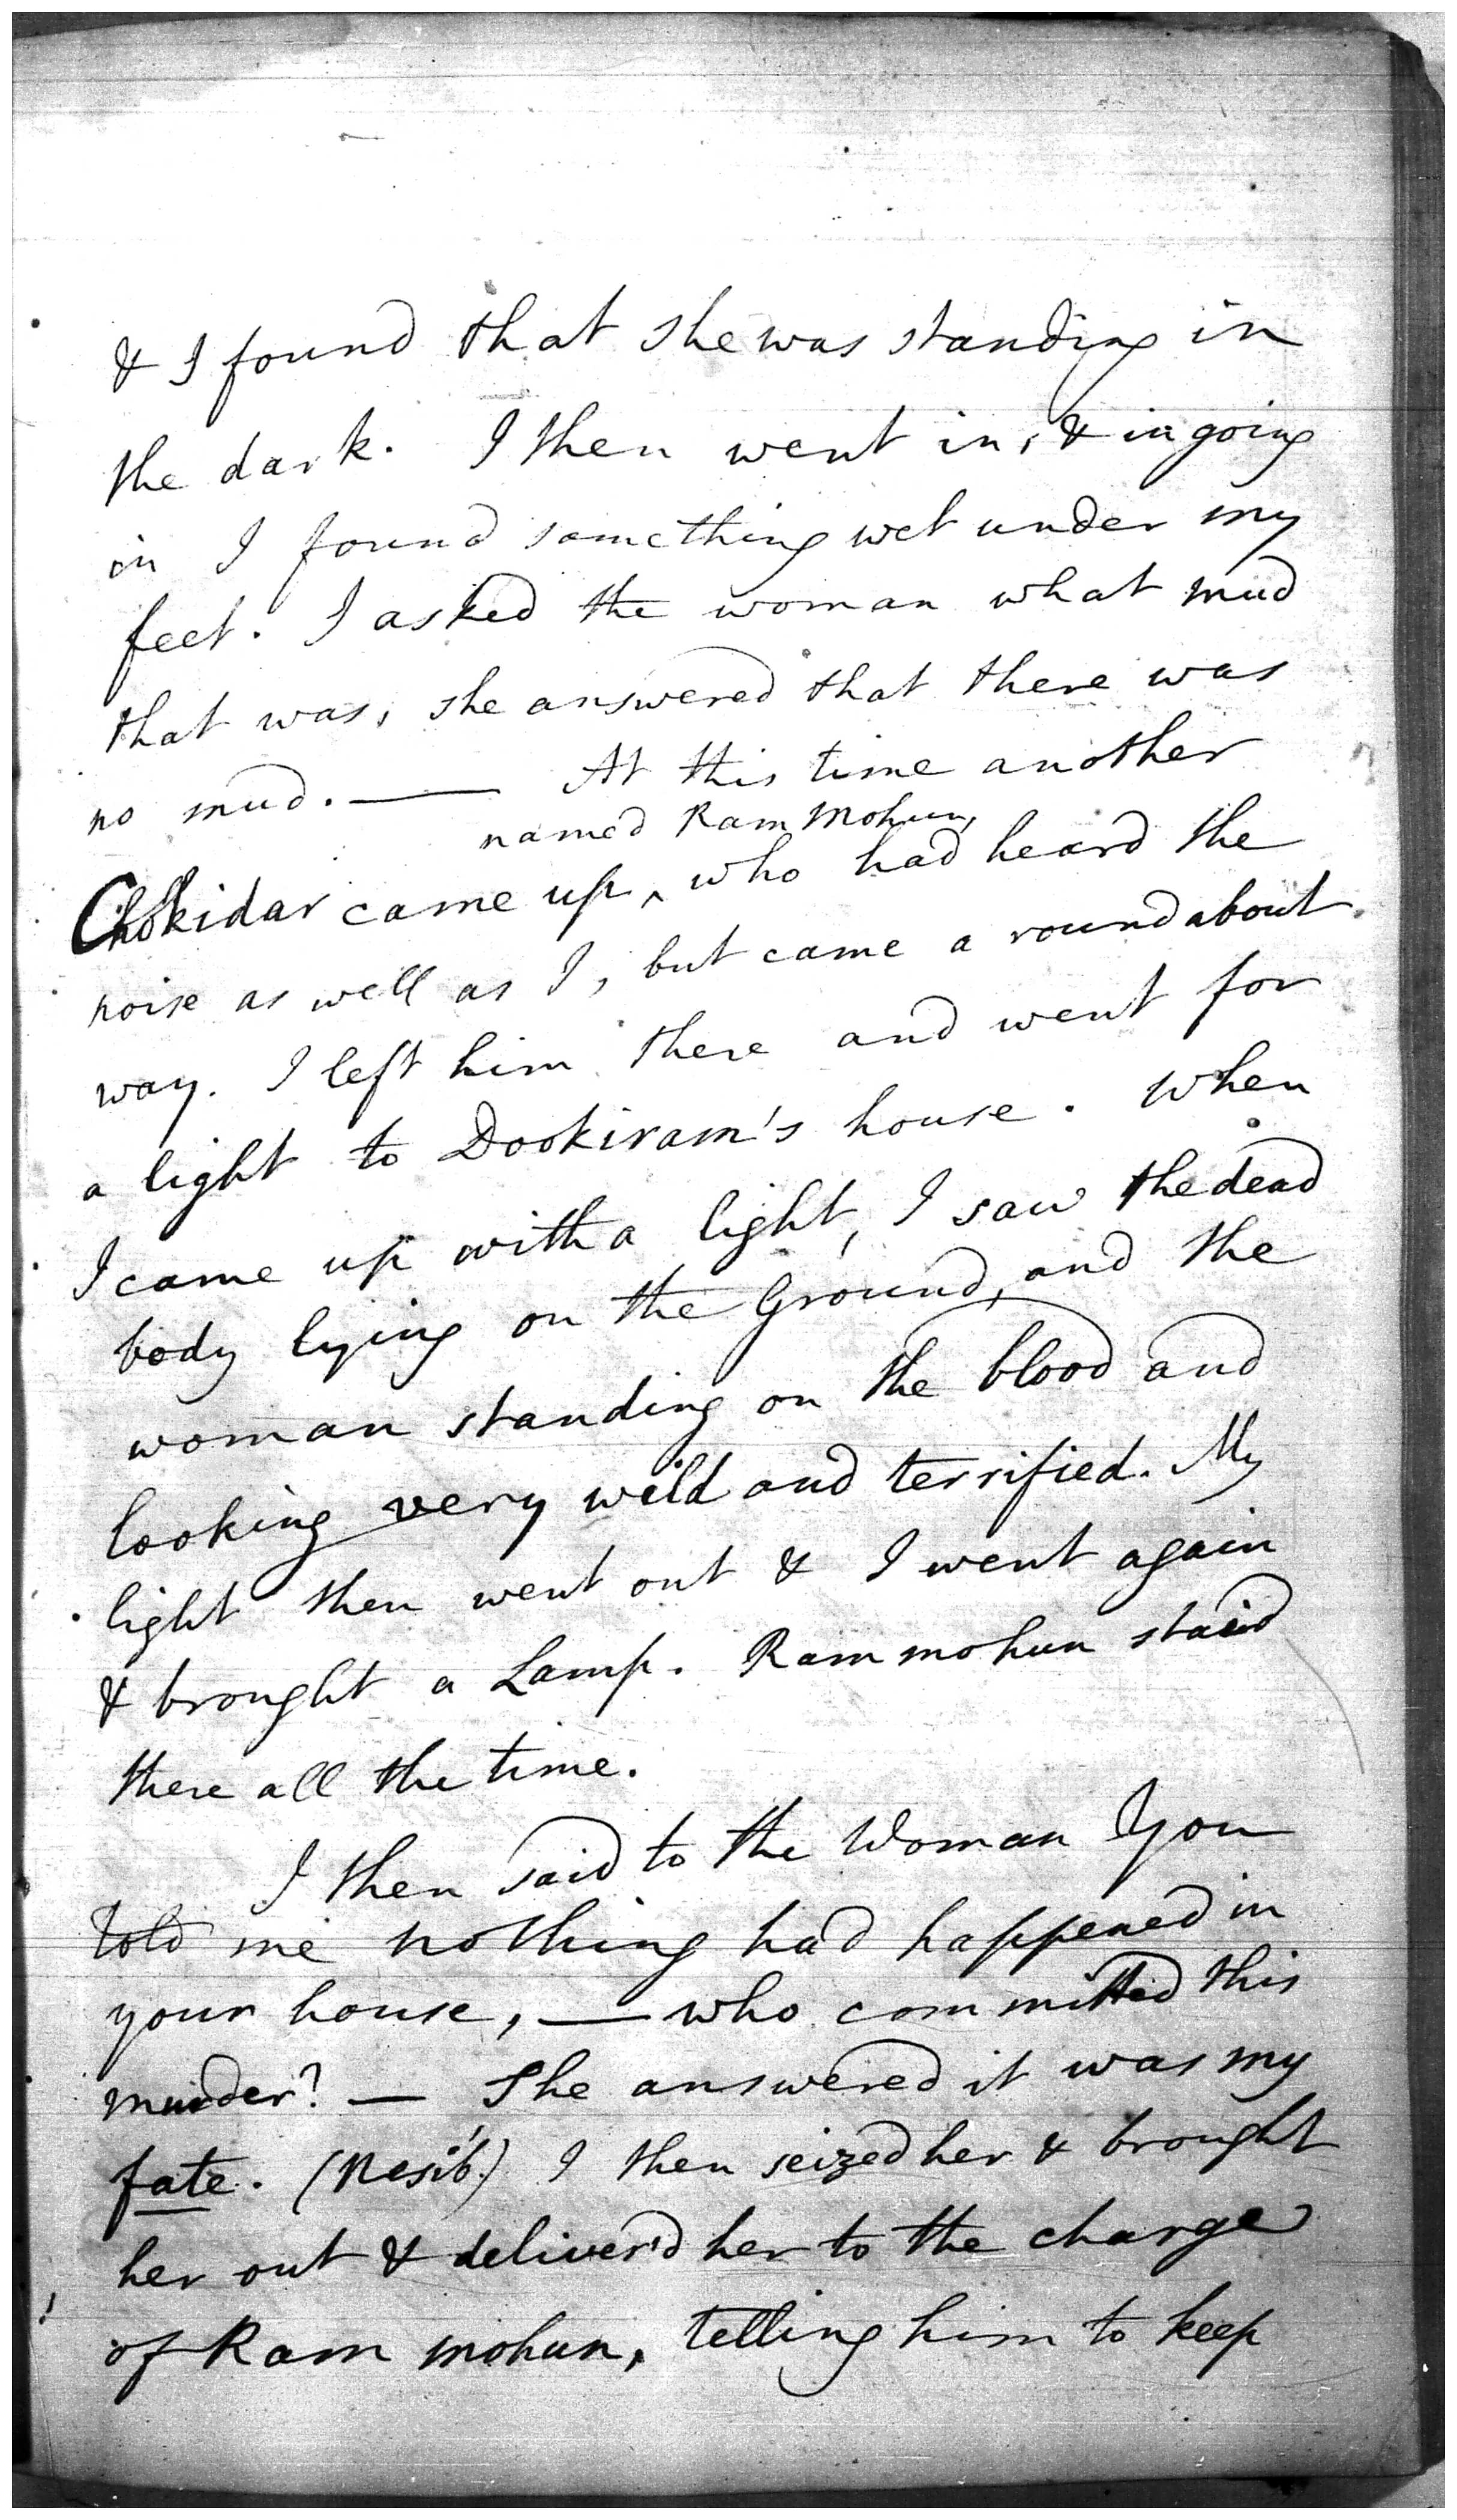 & I found that she was standing in
the dark. I then went in, & in going
in I found something wet under my
feet. I asked the woman what mud
that was, she answered that there was
no mud. — At this time another
named Ram Mohun,
Chokidar came up ‸ who had heard the
noise as well as I, but came a roundabout
way. I left him there and went for
a light to Dookiram's house. When
I came up with a light, I saw the dead
body lying on the Ground, and the
woman standing on the blood and
looking very wild and terrified. My
light then went out & I went again
& brought a Lamp. Ram mohun staid
there all the time.
I then said to the Woman You
told me nothing had happened in
your house, — who committed this
murder? — She answered it was my
fate. (Nesib.) I then seized her & brought
her out & deliver'd her to the charge
of Ram mohun, telling him to keep